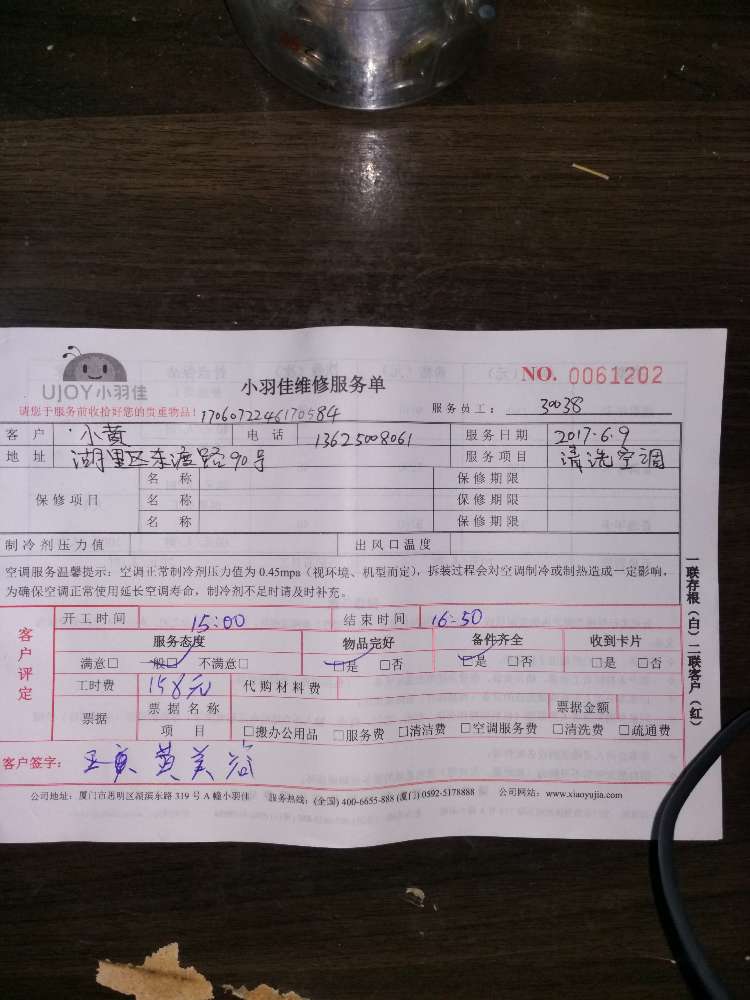 UJOY小羽佳
小羽佳维修服务单
NO. 0061202
请您于服务前收拾好您的贵重物品! 1706072246170584
服务员工: 30038
客户 小黄 电话 13625008061 服务日期 2017.6.9
地址 湖里区东渡路90号 服务项目 清洗空调
保修项目
名称 保修期限
名称 保修期限
名称 保修期限
制冷剂压力值 出风口温度
空调服务温馨提示：空调正常制冷剂压力值为 0.45mpa（视环境、机型而定），拆装过程会对空调制冷或制热造成一定影响，
为确保空调正常使用延长空调寿命，制冷剂不足时请及时补充。
客户评定
开工时间 15:00 结束时间 16:50
服务态度 物品完好 备件齐全 收到卡片
满意□ 一般□ 不满意□ □是 □否 □是 □否 □是 □否
工时费 158元 代购材料费
票据 票据名称 票据金额
项目 □搬办公用品 □服务费 □清洁费 □空调服务费 □清洗费 □疏通费
客户签字： 黄美
公司地址：厦门市思明区湖滨东路 319 号 A 幢小羽佳 服务热线：(全国) 400-6655-888 (厦门) 0592-5178888 公司网站：www.xiaoyujia.com
一联存根（白）二联客户（红）